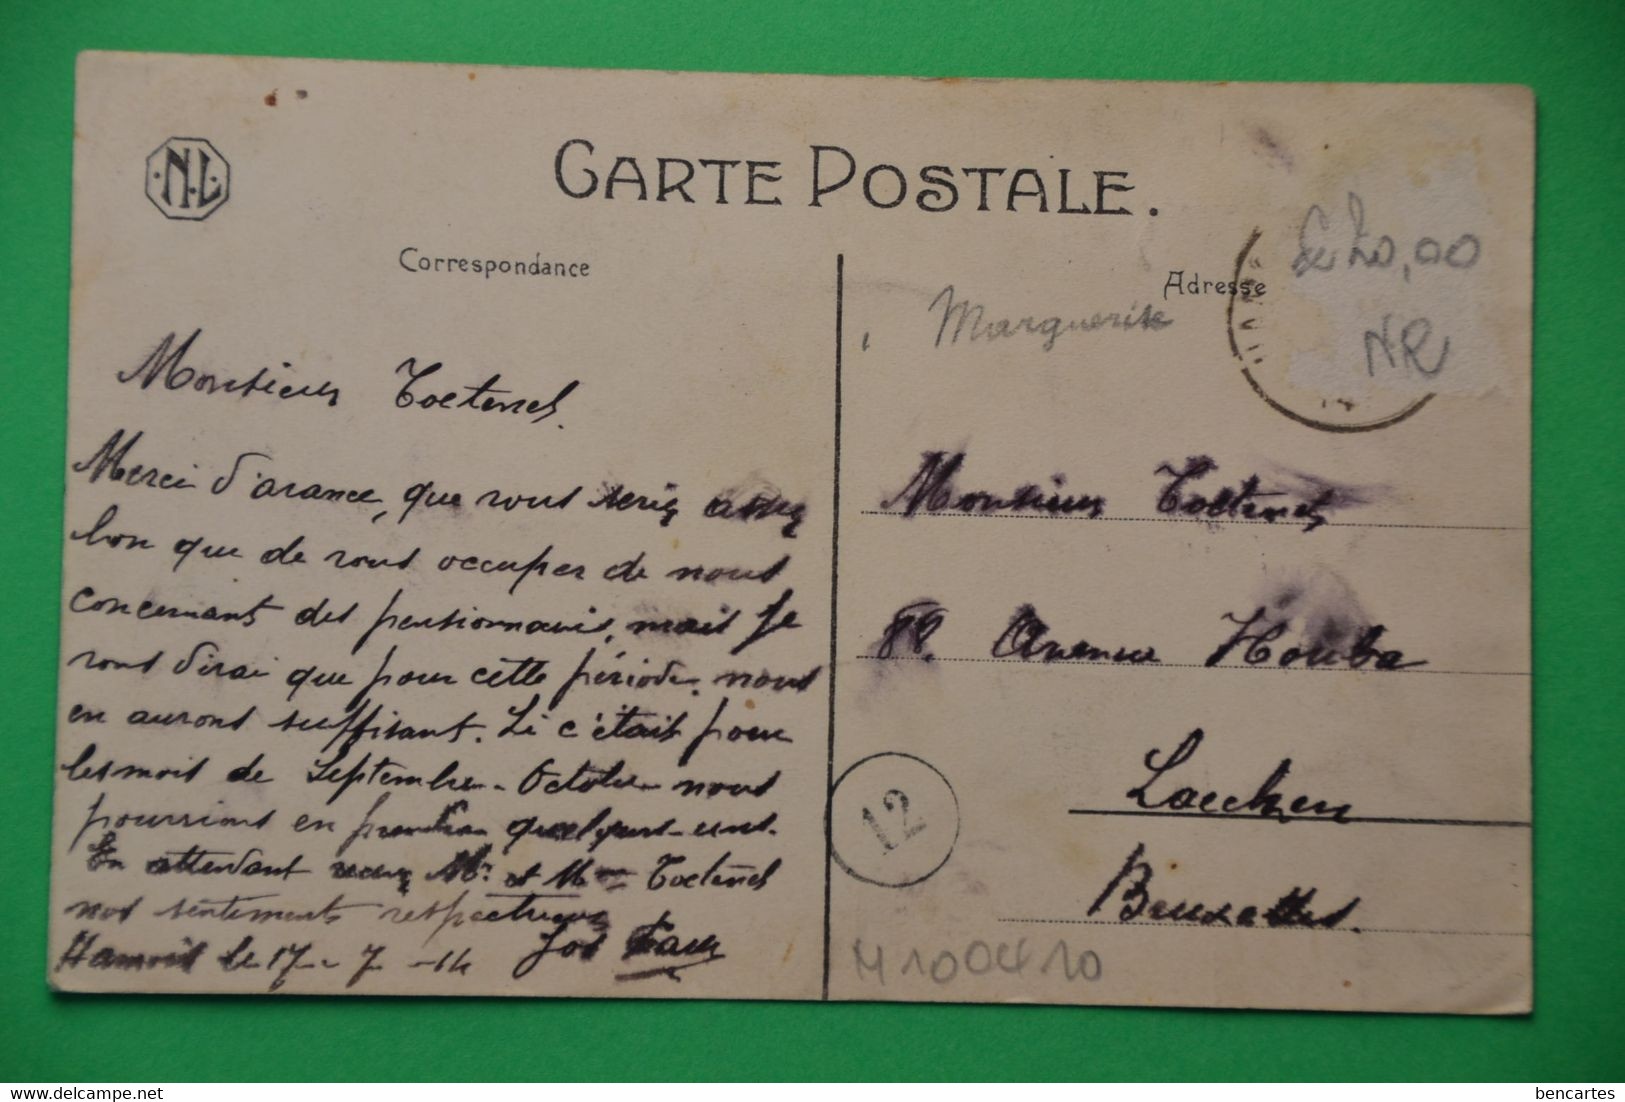 N.L.
CARTE POSTALE.
Correspondance
Adresse
Marguerite
€ 20,00
NR
Monsieur Toctenel.
Merci d'avance, que vous seriez assez
bon que de vous occuper de nous
concernant des pensionnaires, mais je
vous dirai que pour cette période, nous
en aurons suffisant. Si c'était pour
les mois de Septembre - Octobre nous
pourrions en prendre quelques-uns.
En attendant recevez Mr. et Mme Toctenel
nos sentiments respectueux
Hamoir le 17-7-14 Jos
Monsieur Toctenel
88. Avenue Houba
Laecken
Bruxelles.
12
M100410
bencartes